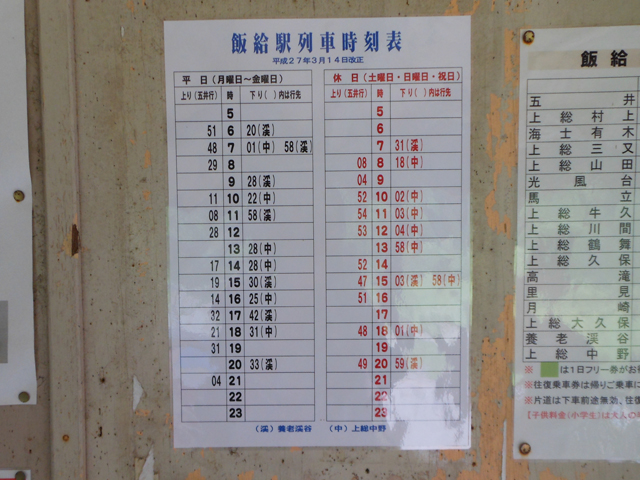 飯給駅列車時刻表
平成27年3月14日改正
平 日（月曜日～金曜日）
上り（五井行） 時 下り（ ）内は行先
5
51 6 20(溪)
48 7 01(中) 58(溪)
29 8
9 28(溪)
11 10 22(中)
08 11 58(溪)
28 12
13 28(中)
17 14 28(中)
19 15 30(溪)
14 16 25(中)
32 17 42(溪)
21 18 31(中)
31 19
20 33(溪)
04 21
22
23
休 日（土曜日・日曜日・祝日）
上り（五井行） 時 下り（ ）内は行先
5
6
7 31(溪)
08 8 18(中)
04 9
52 10 02(中)
54 11 03(中)
53 12 04(中)
13 58(中)
52 14
47 15 03(溪) 58(中)
51 16
17
48 18 01(中)
19
49 20 59(溪)
21
22
23
（溪）養老溪谷 （中）上総中野
飯給
五井
上総村上
海士有木
上総三又
上総山田
光風台
馬立
上総牛久
上総川間
上総鶴舞
上総久保
高滝
里見
月崎
上総大久保
養老渓谷
上総中野
※ は1日フリー券がお
※往復乗車券は帰りご乗車に
※片道は下車前途無効、往復
【子供料金(小学生)は大人の